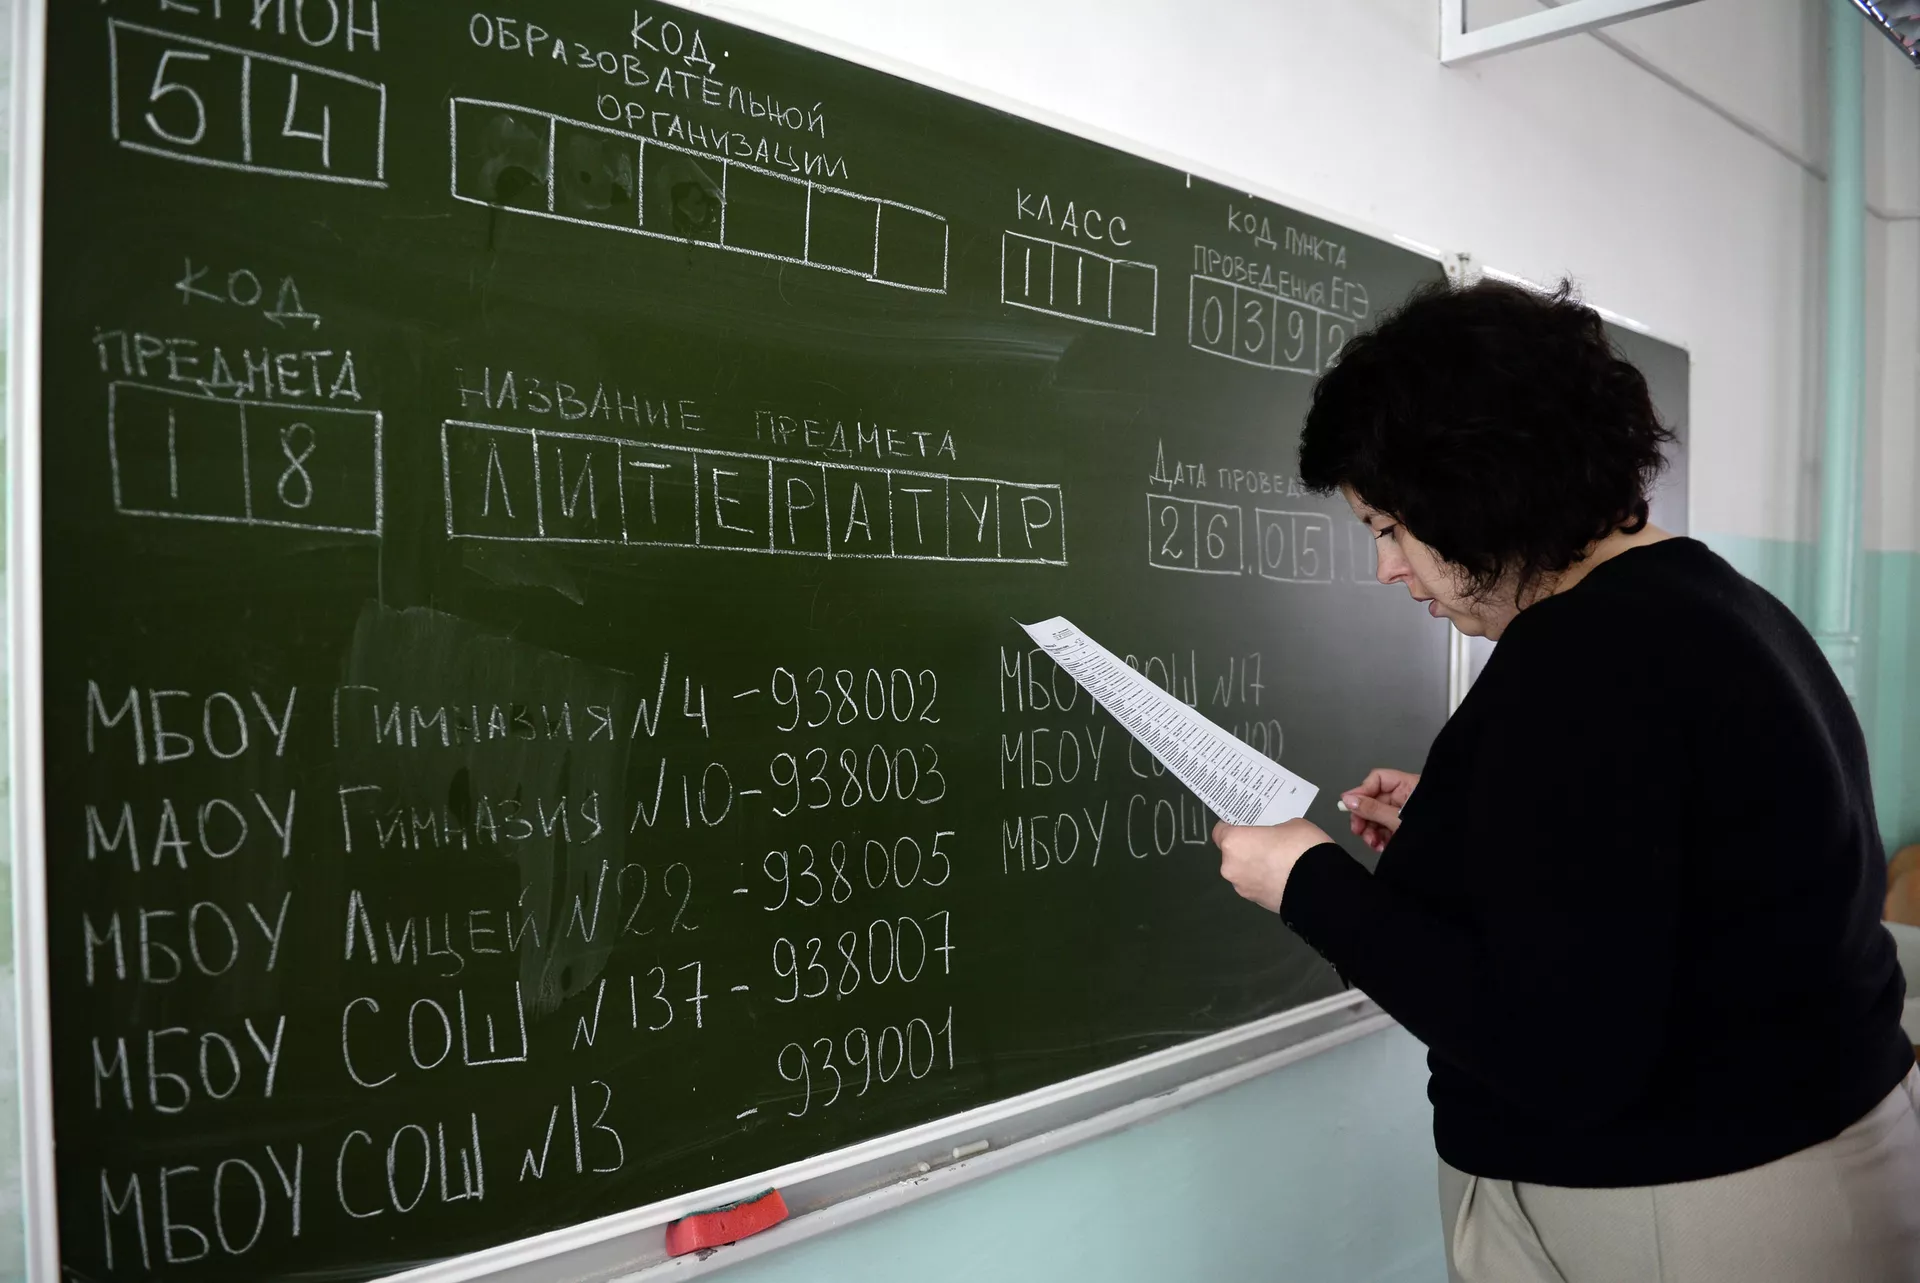 РЕГИОН
54
КОД
ОБРАЗОВАТЕЛЬНОЙ
ОРГАНИЗАЦИИ
КЛАСС
11
КОД ПУНКТА
ПРОВЕДЕНИЯ ЕГЭ
0392
КОД
ПРЕДМЕТА
18
НАЗВАНИЕ ПРЕДМЕТА
ЛИТЕРАТУР
ДАТА
26.05.
МБОУ Гимназия №4 - 938002
МАОУ Гимназия №10 - 938003
МБОУ Лицей №22 - 938005
МБОУ СОШ №137 - 938007
МБОУ СОШ №13 - 939001
МБОУ СОШ №17
МБОУ
МБОУ СОШ